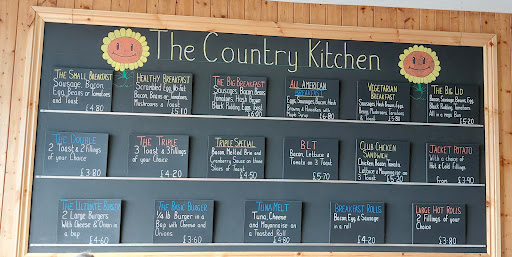 The Country Kitchen
The Small Breakfast
Sausage, Bacon,
Egg, Beans or tomatoes
and Toast
£4·80
Healthy Breakfast
Scrambled Egg, No-Fat
Bacon, Beans, tomatoes,
Mushrooms & Toast
£5·10
The Big Breakfast
Sausages, Bacon, Beans
Tomatoes, Hash Brown
Black Pudding, Egg, Toast
£6·90
All American
Breakfast
Eggs, Sausages, Bacon, Hash
Browns & Pancakes with
Maple Syrup.
Vegetarian
Breakfast
Sausages, Hash Browns,
Mushrooms, Tomatoes
& Toast
The Big Lid
Bacon, Sausage, Beans, Egg
Black Pudding, Tomatoes
All in a bun
£5·20
The Double
2 Toast & 2 Fillings
of your Choice
£3·80
The Triple
3 Toast & 3 Fillings
of your Choice
£4·20
Triple Special
Bacon, Melted Brie and
Cranberry Sauce on three
Slices of Toast
£4·50
BLT
Bacon, Lettuce &
Tomato on 3 Toast
Club Chicken
Sandwich
Chicken, Bacon, Tomato,
Lettuce & Mayonnaise on
3 Toast
£5·50
Jacket Potato
With a choice of
Hot & Cold Fillings
From £3·90
The Ultimate Burger
2 Large Burgers
With Cheese & Onion in
a bap
£4·60
The Basic Burger
1/4 lb Burger in a
Bap with Cheese and
Onions.
£3·60
Tuna Melt
Tuna, Cheese
and Mayonnaise on
a Toasted Roll
£4·80
Breakfast Rolls
Bacon, Egg & Sausage
in a roll
£4·20
Large Hot Rolls
2 Fillings of
your Choice
£3·80